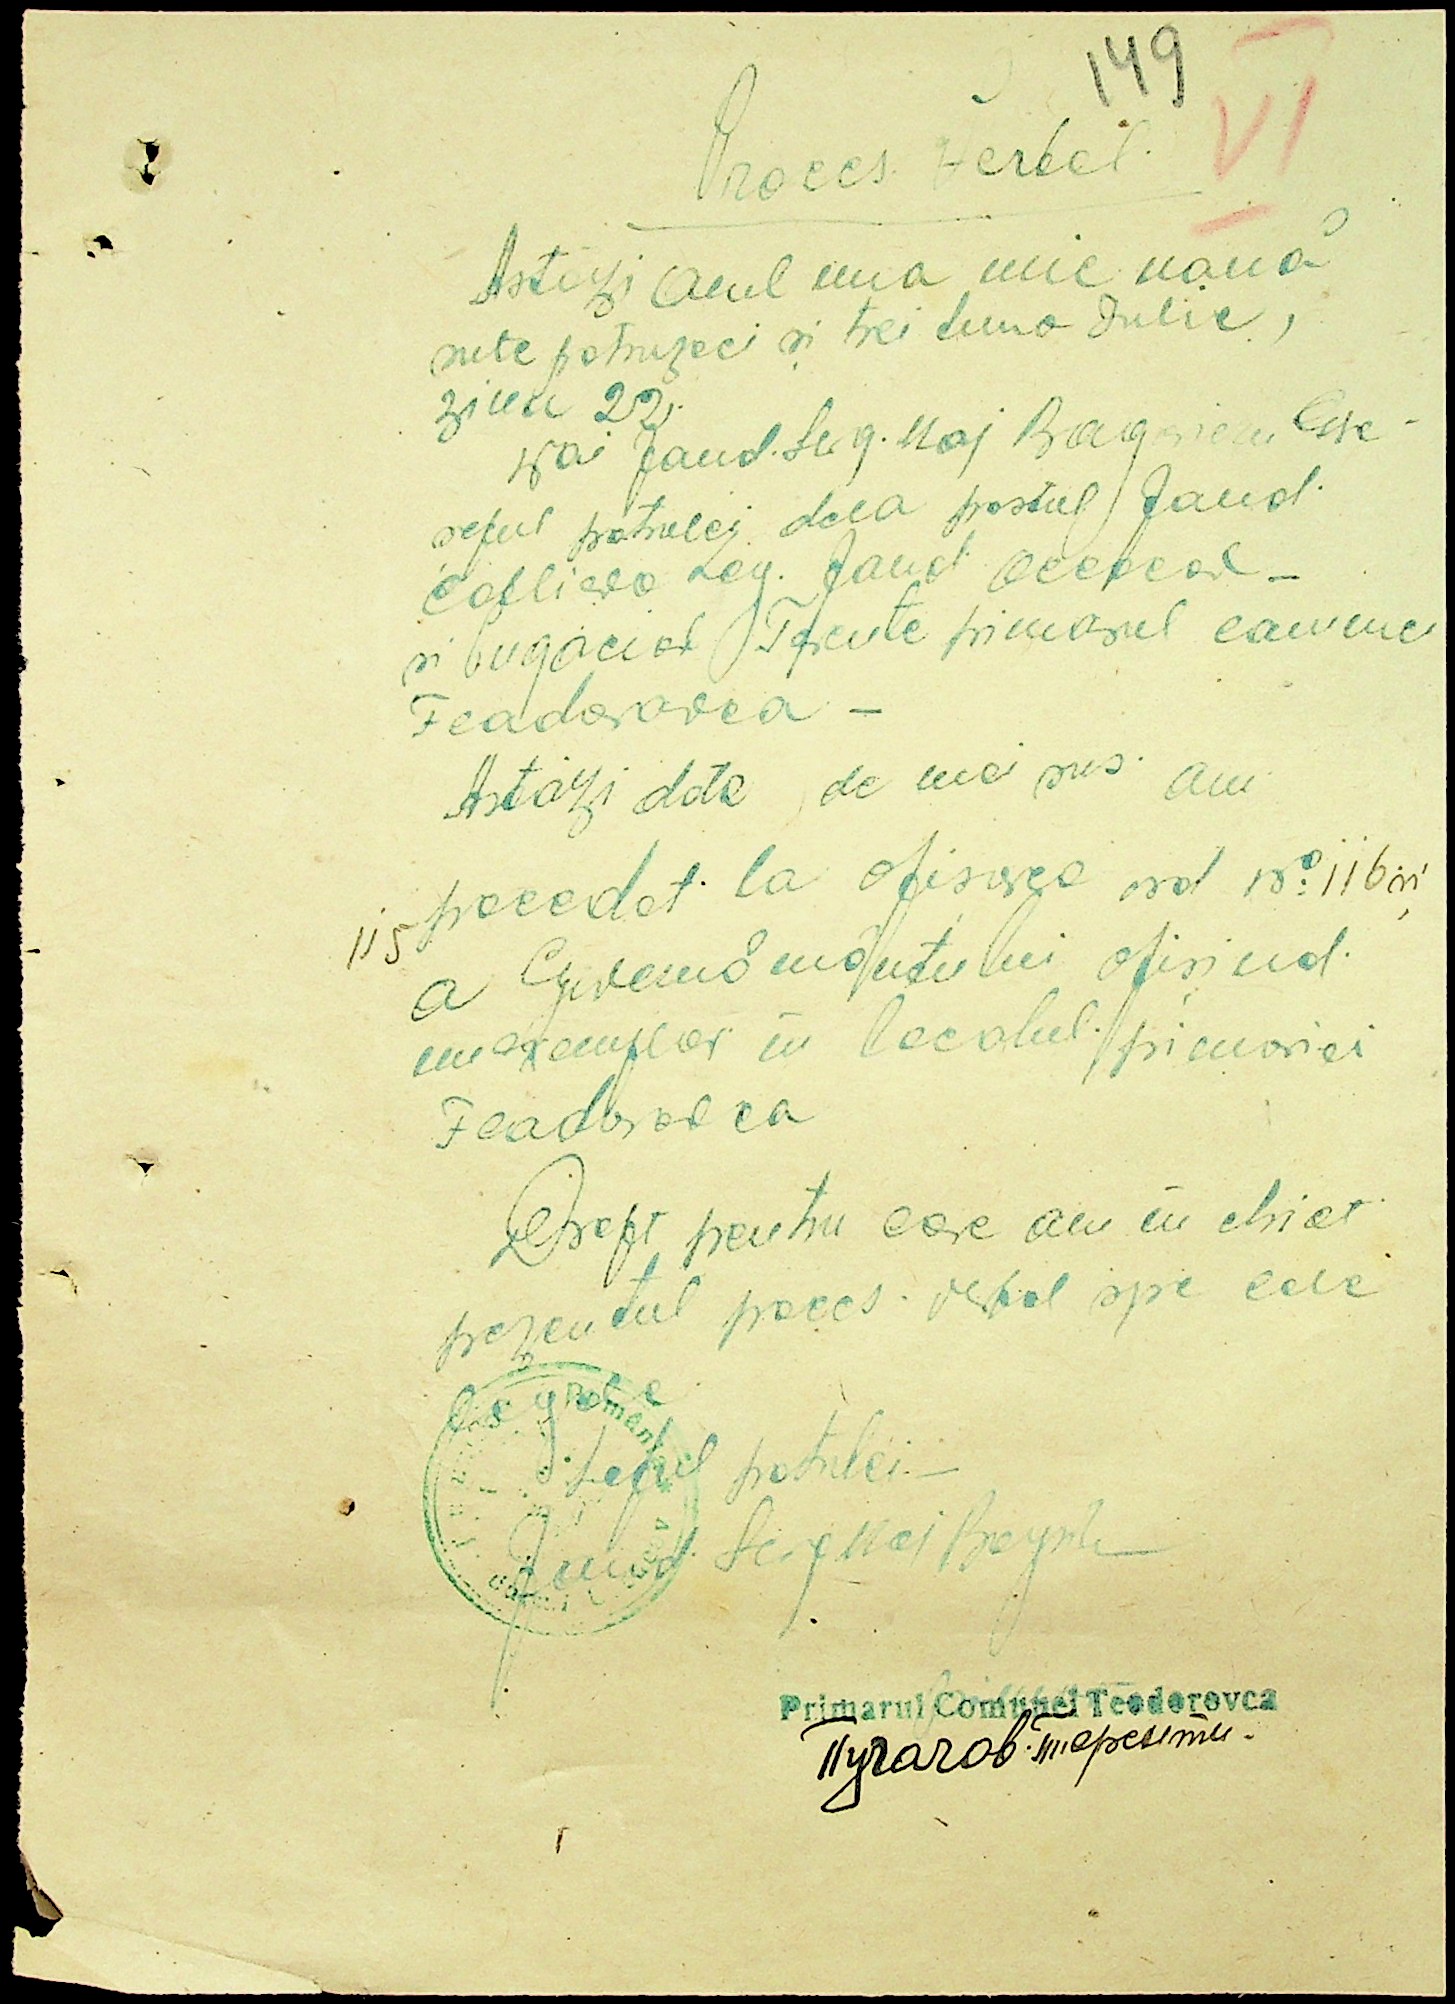 149
VI
Proces Verbal
Astăzi anul una mie nouă
sute patruzeci și trei luna Iulie,
ziua 22.
Noi Jand. Serg. Maj
șeful patrulei dela postul Jand.
Leg. Jand
și Terente primarul comunei
Feadorovca —
Astăzi data de mai sus am
procedat la afișarea ord No: 116 și
115
a Guvernământului afișind
un exemplar în localul primăriei
Feadorovca
Drept pentru care am în cheiat
prezentul proces verbal spre cele
legale
Șeful patrulei —
Jand. Serg Maj
Primarul Comunei Teodorovca
Пугачов Терентти.